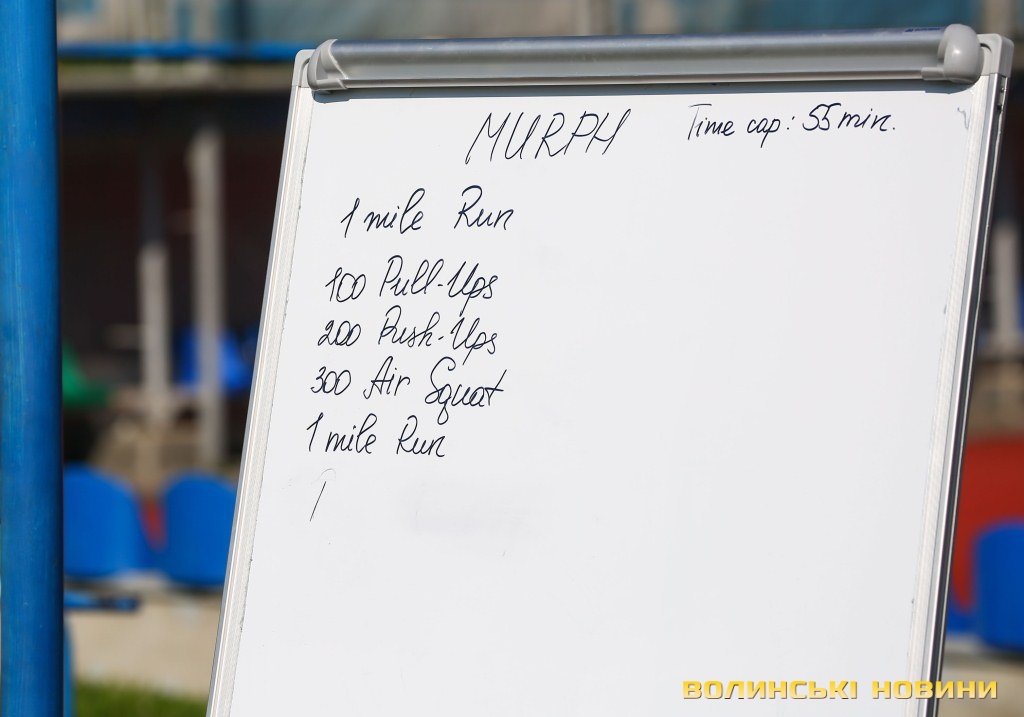 MURPH
Time cap: 55 min.
1 mile Run
100 Pull-Ups
200 Push-Ups
300 Air Squat
1 mile Run
ВОЛИНСЬКІ НОВИНИ